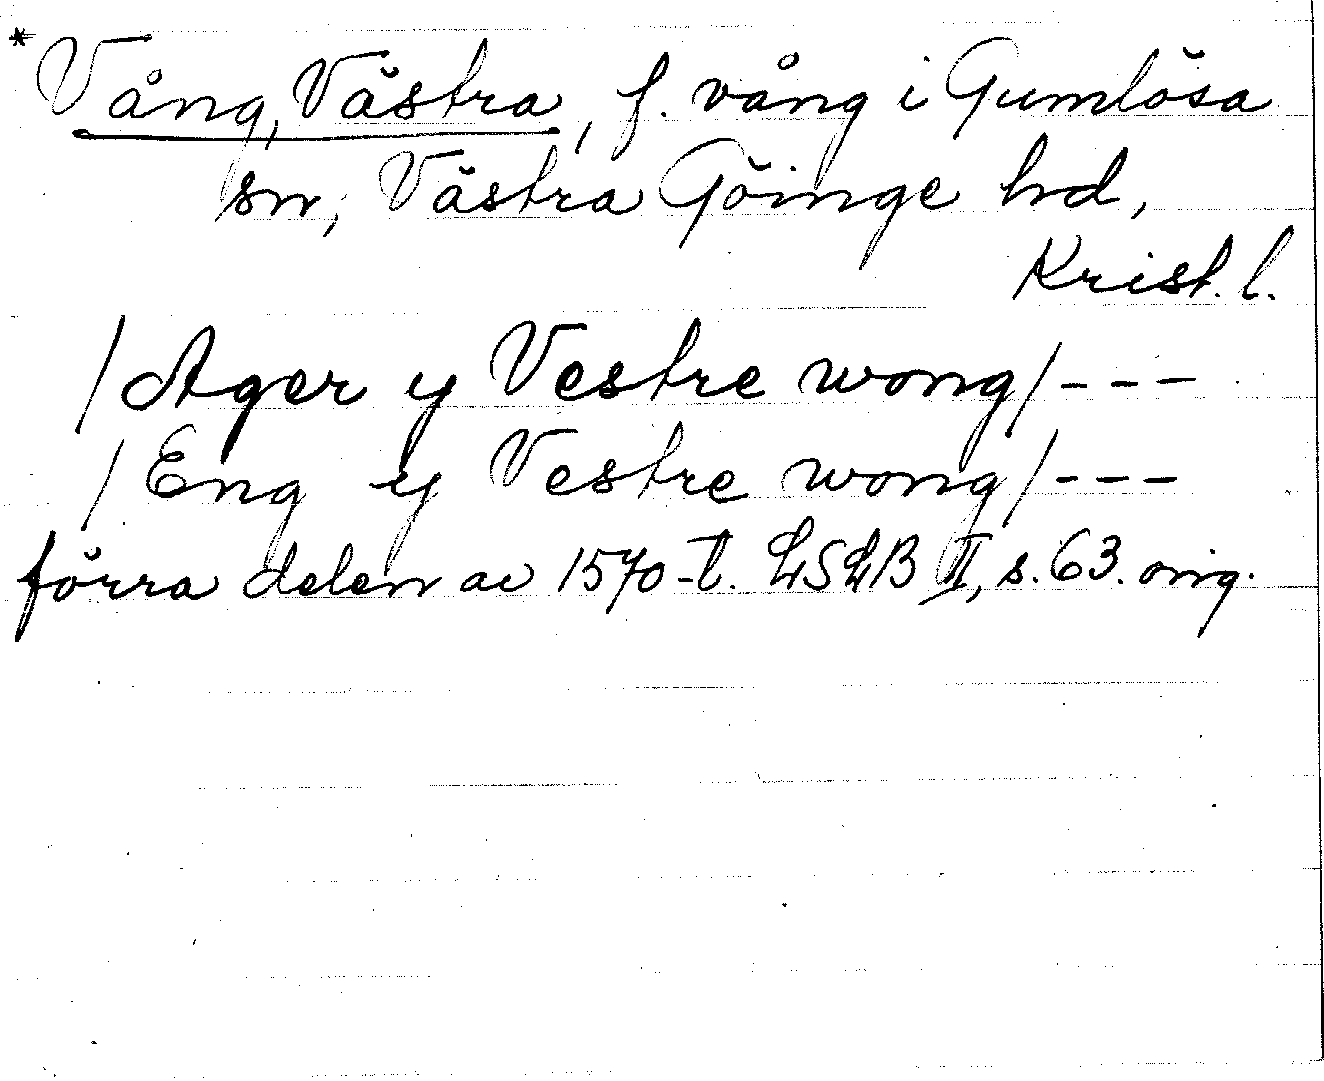 *Vång, Västra, f. vång i Gumlösa
sn, Västra Göinge hd,
Krist. l.
/Ager y Vestre wong/---
/Eng y Vestre wong/---
förra delen av 1570-t. LSLB II, s. 63. orig.